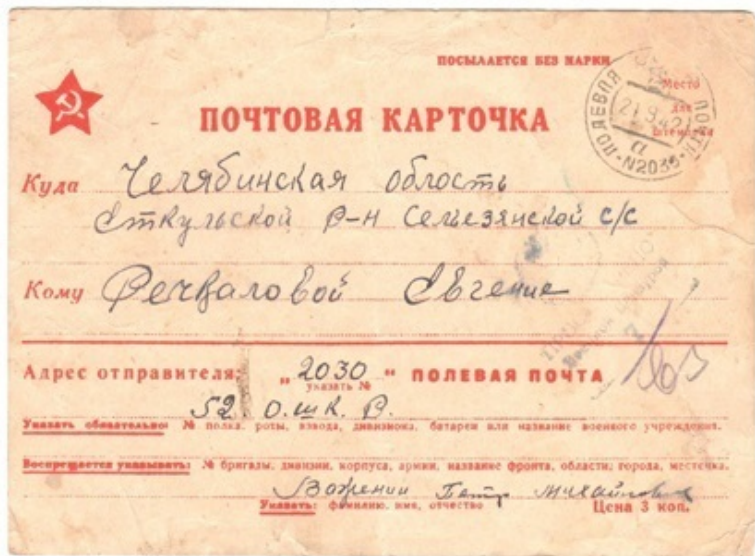 ПОСЫЛАЕТСЯ БЕЗ МАРКИ
Место
для
штемпеля
21 9 42
а
N2035
ПОЧТОВАЯ КАРТОЧКА
Куда Челябинская область
Еткульской р-н Селезянской с/с
Кому Речкаловой Евгение
Адрес отправителя: „ 2030 “ ПОЛЕВАЯ ПОЧТА
указать №
52 О.шк. В.
Указать обязательно: № полка, роты, взвода, дивизиона, батареи или название военного учреждения.
Воспрещается указывать: № бригады, дивизии, корпуса, армии, название фронта, области, города, местечка.
Важенин Петр Михайлович
Указать: фамилию, имя, отчество Цена 3 коп.